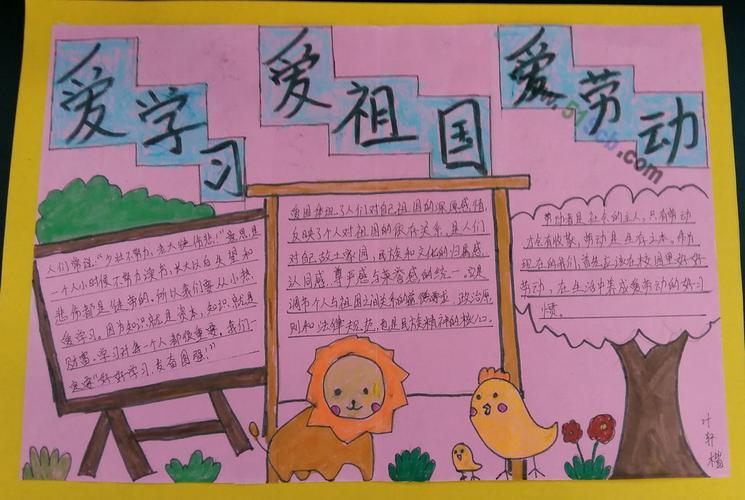 爱学习
爱祖国
爱劳动
人们常说："少壮不努力，老大徒伤悲！"意思是
一个人小时候不努力读书，长大以后失望和
悲伤都是徒劳的。所以我们要从小热
爱学习。因为知识就是资本，知识就是
财富。学习对每一个人都很重要，我们一
定要"好好学习，发奋图强！"
爱国体现了人们对自己祖国的深厚感情，
反映了个人对祖国的依存关系，是人们
对自己故土家园、民族和文化的归属感、
认同感、尊严感与荣誉感的统一。它是
调节个人与祖国之间关系的道德、政治原
则和法律规范，也是民族精神的核心。
劳动者是社会的主人，只有劳动
才会有收获，劳动是生存之本。作为
现在的我们，首先应该在校园里好好
劳动，在生活中养成爱劳动的好习
惯。
叶轩
.com